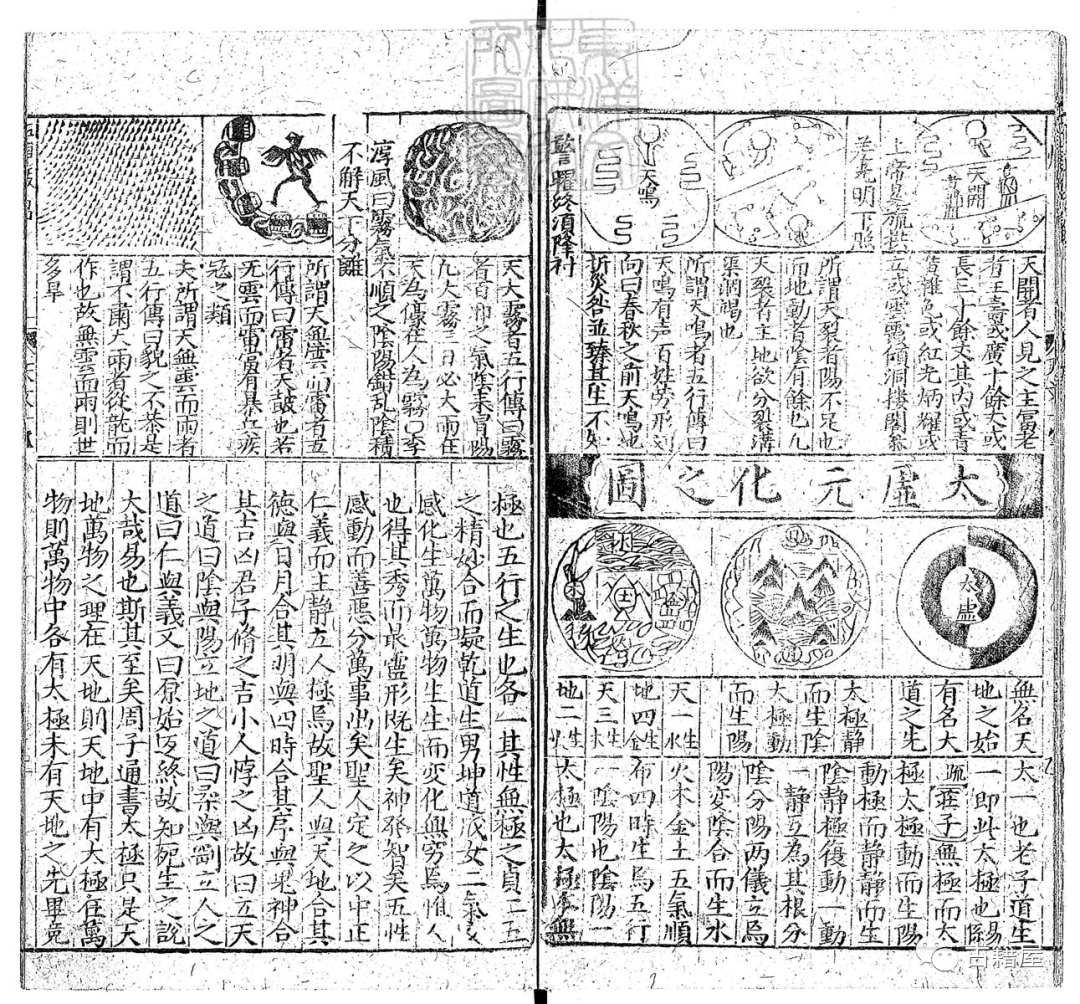 天開
天鳴
上帝
至尭明下照
天開者人見之主富老
者主壽或廣十餘丈或
長三十餘丈其内或青
黄雜色或紅光炳耀或
五或雲霞傾洞樓閣
所謂天裂者陽不足也
而地動者陰有餘也凡
天裂者主地欲分裂溝
渠涸竭也
所謂天鳴者五行傳曰
天鳴有声百姓勞形
向曰春秋之前天鳴也
折災咎並臻其生不
警躍終須降
太虛元化之圖
太虛
無名天
地之始
有名大
道之先
太極靜
而生陰
太極動
而生陽
天一生水
地四生金
天三生木
地二生火
太一也老子道生
一即此太極也易係
疏莊子無極而太
極太極動而生陽
動極而静静而生
陰静極復動一動
一静互為其根分
陰分陽两儀立焉
陽変陰合而生水
火木金土五氣順
布四時生焉五行
一陰陽也陰陽一
太極也太極本無
天大霧者五行傳曰霧
者百邪之氣陰来冒陽
凡大霧三日必大雨在
天為濛在人為霧○李
淳風曰霧氣不順之陰陽錯乱陰積
不解天丁分離
所謂天無雲而雷者五
行傳曰雷者天鼓也若
无雲而雷當有暴兵疾
冦之類
夫所謂天無雲而雨者
五行傳曰貌之不恭是
謂不肅大雨者從龍而
作也故無雲而雨則世
多旱
極也五行之生也各一其性無極之真二五
之精妙合而凝乾道生男坤道成女二氣交
感化生萬物萬物生生而变化無窮焉惟人
也得其秀而最靈形既生矣神發智矣五性
感動而善惡分萬事出矣聖人定之以中正
仁義而主静立人極焉故聖人與天地合其
德與日月合其明與四時合其序與鬼神合
其吉凶君子脩之吉小人悖之凶故曰立天
之道曰陰與陽立地之道曰柔與剛立人之
道曰仁與義又曰原始反終故知死生之説
大哉易也斯其至矣周子通書太極只是天
地萬物之理在天地則天地中有太極在萬
物則萬物中各有太極未有天地之先畢竟
古籍屋